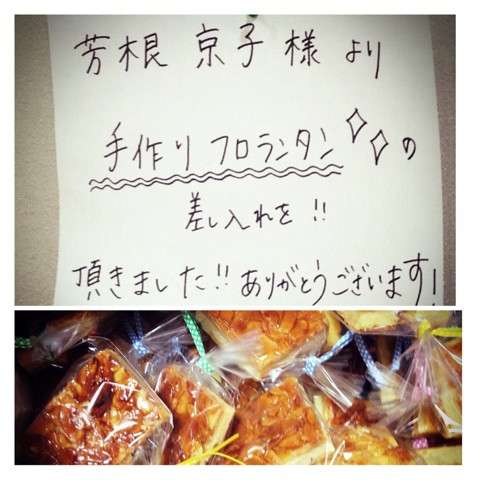 芳根 京子 様 より
手作り フロランタン の
差し入れを !!
頂きました!! ありがとうございます!